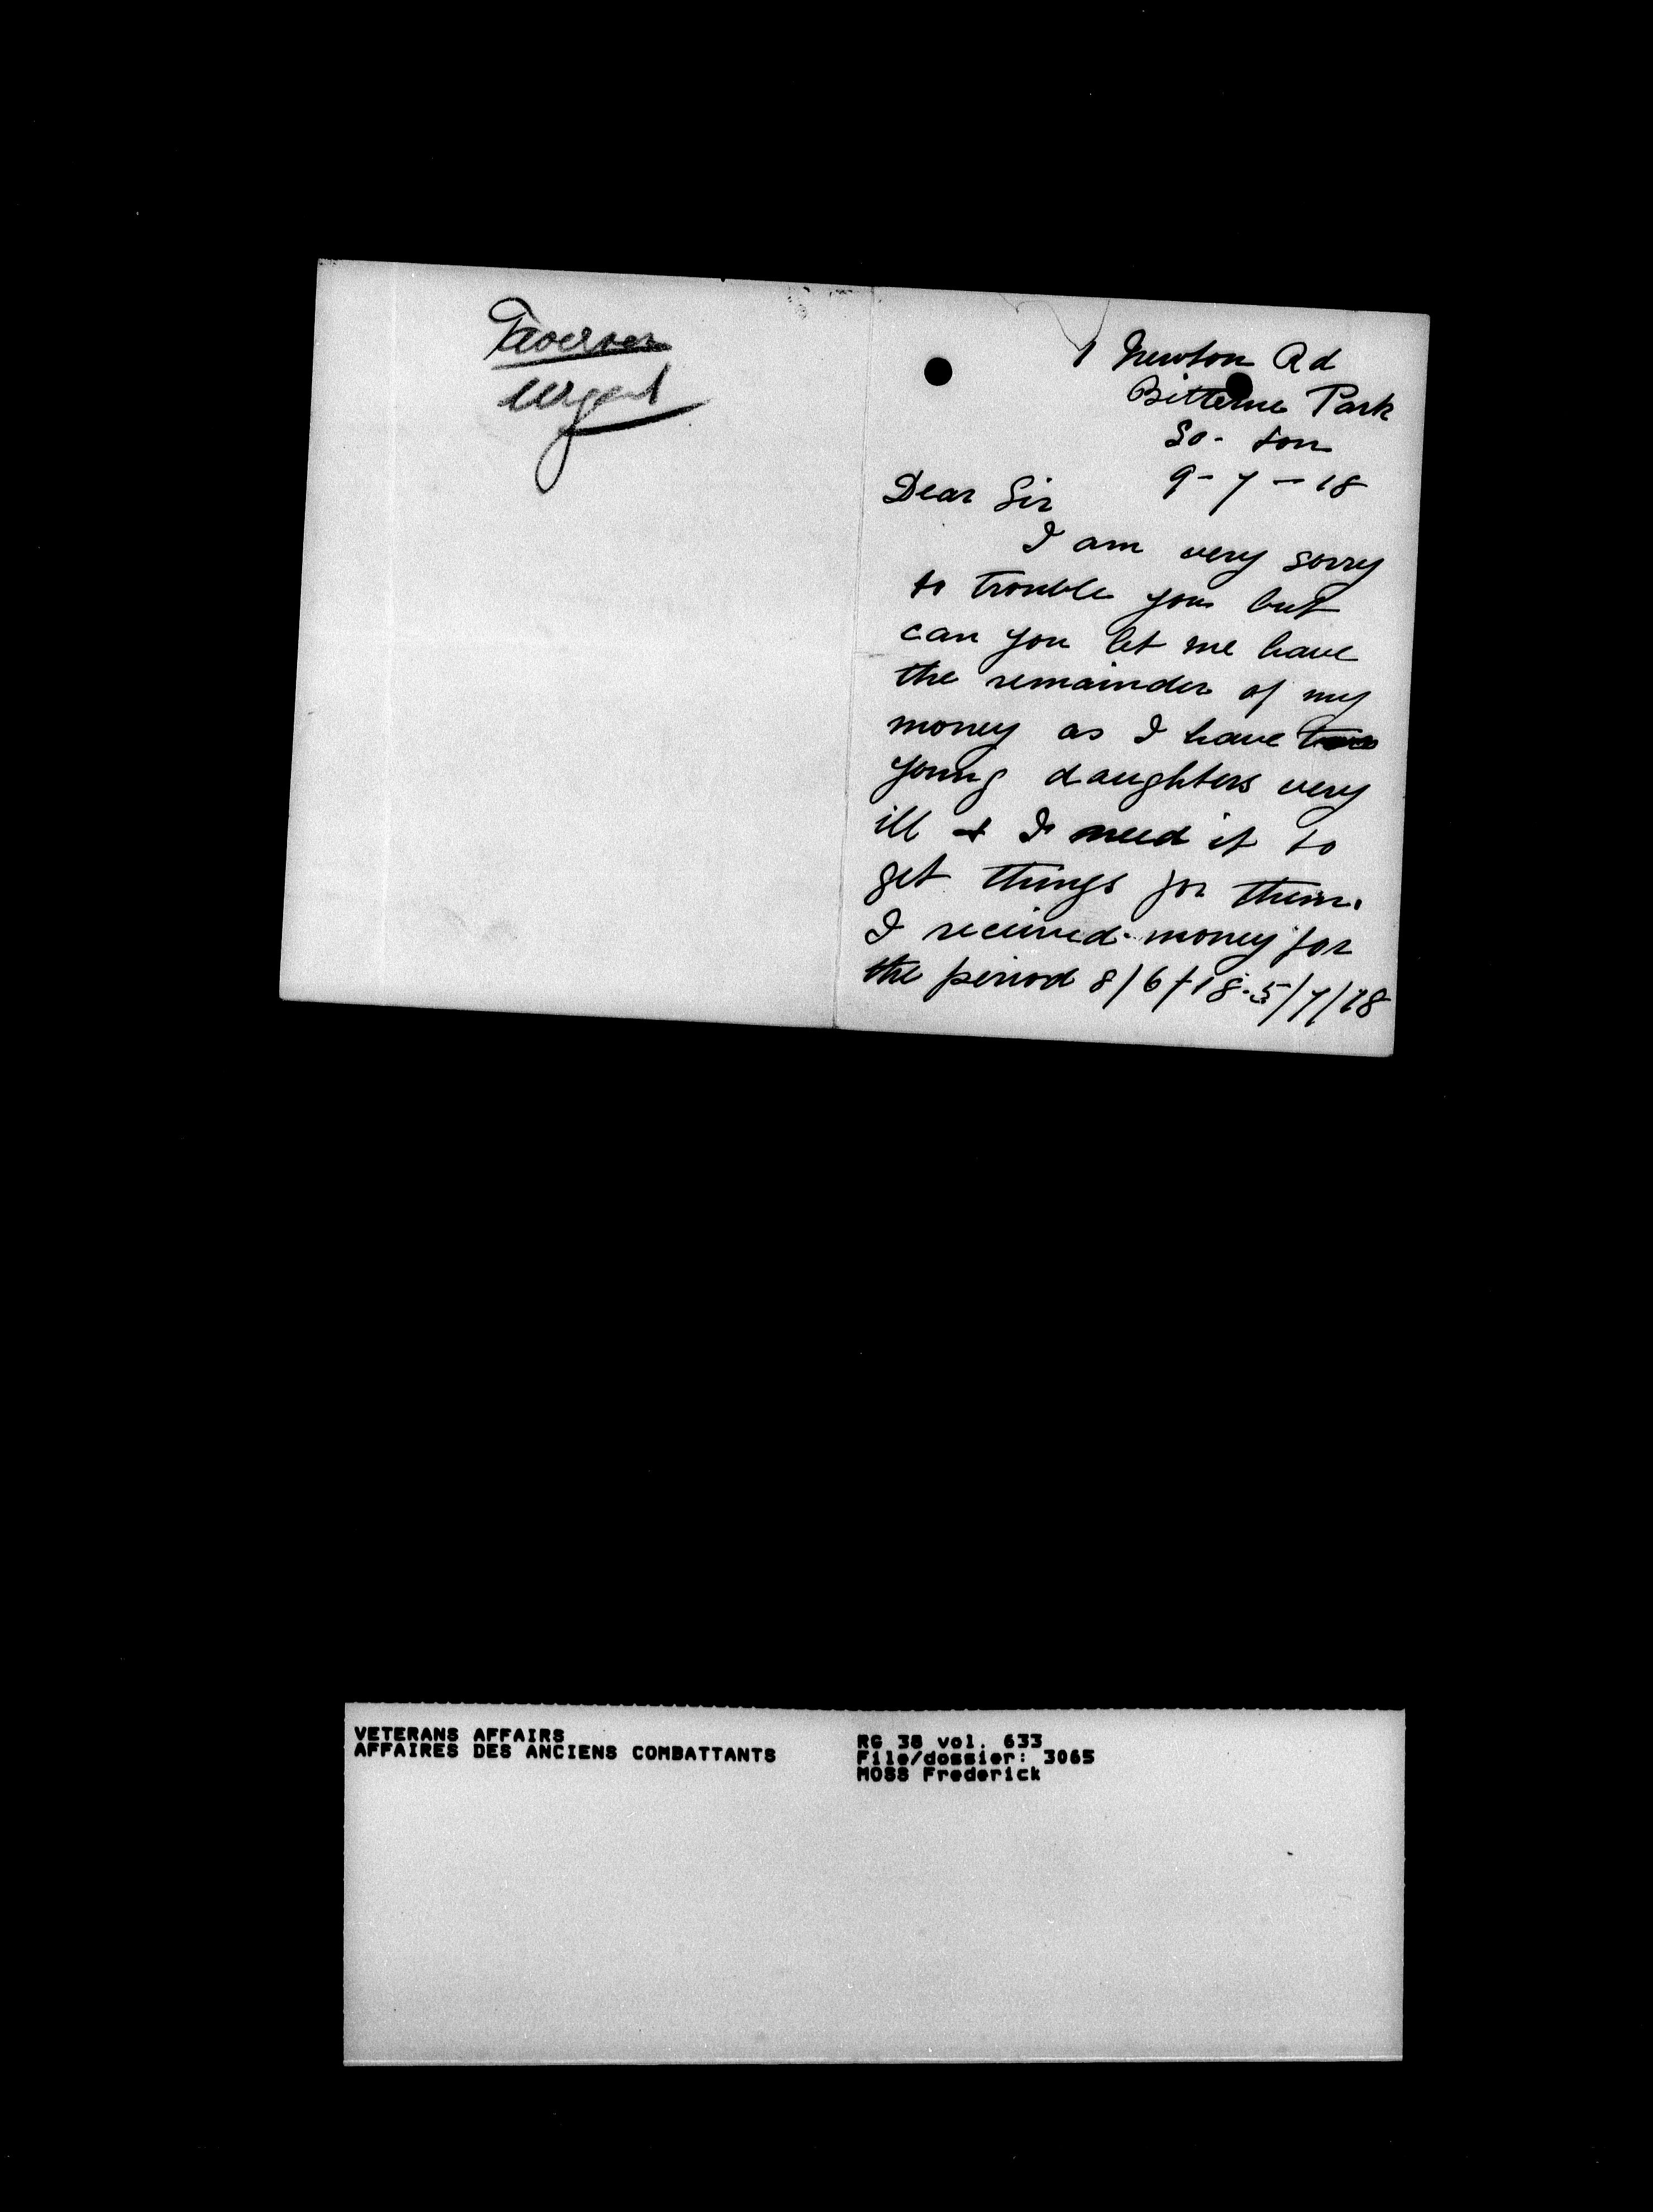 Urgent
1 Newton Rd
Bitterne Park
So-ton
9-7-18
Dear Sir
I am very sorry
to trouble you but
can you let me have
the remainder of my
money as I have two
young daughters very
ill + I need it to
get things for them.
I received money for
the period 8/6/18-5/7/18
VETERANS AFFAIRS
AFFAIRES DES ANCIENS COMBATTANTS
RG 38 vol. 633
File/dossier: 3065
MOSS Frederick